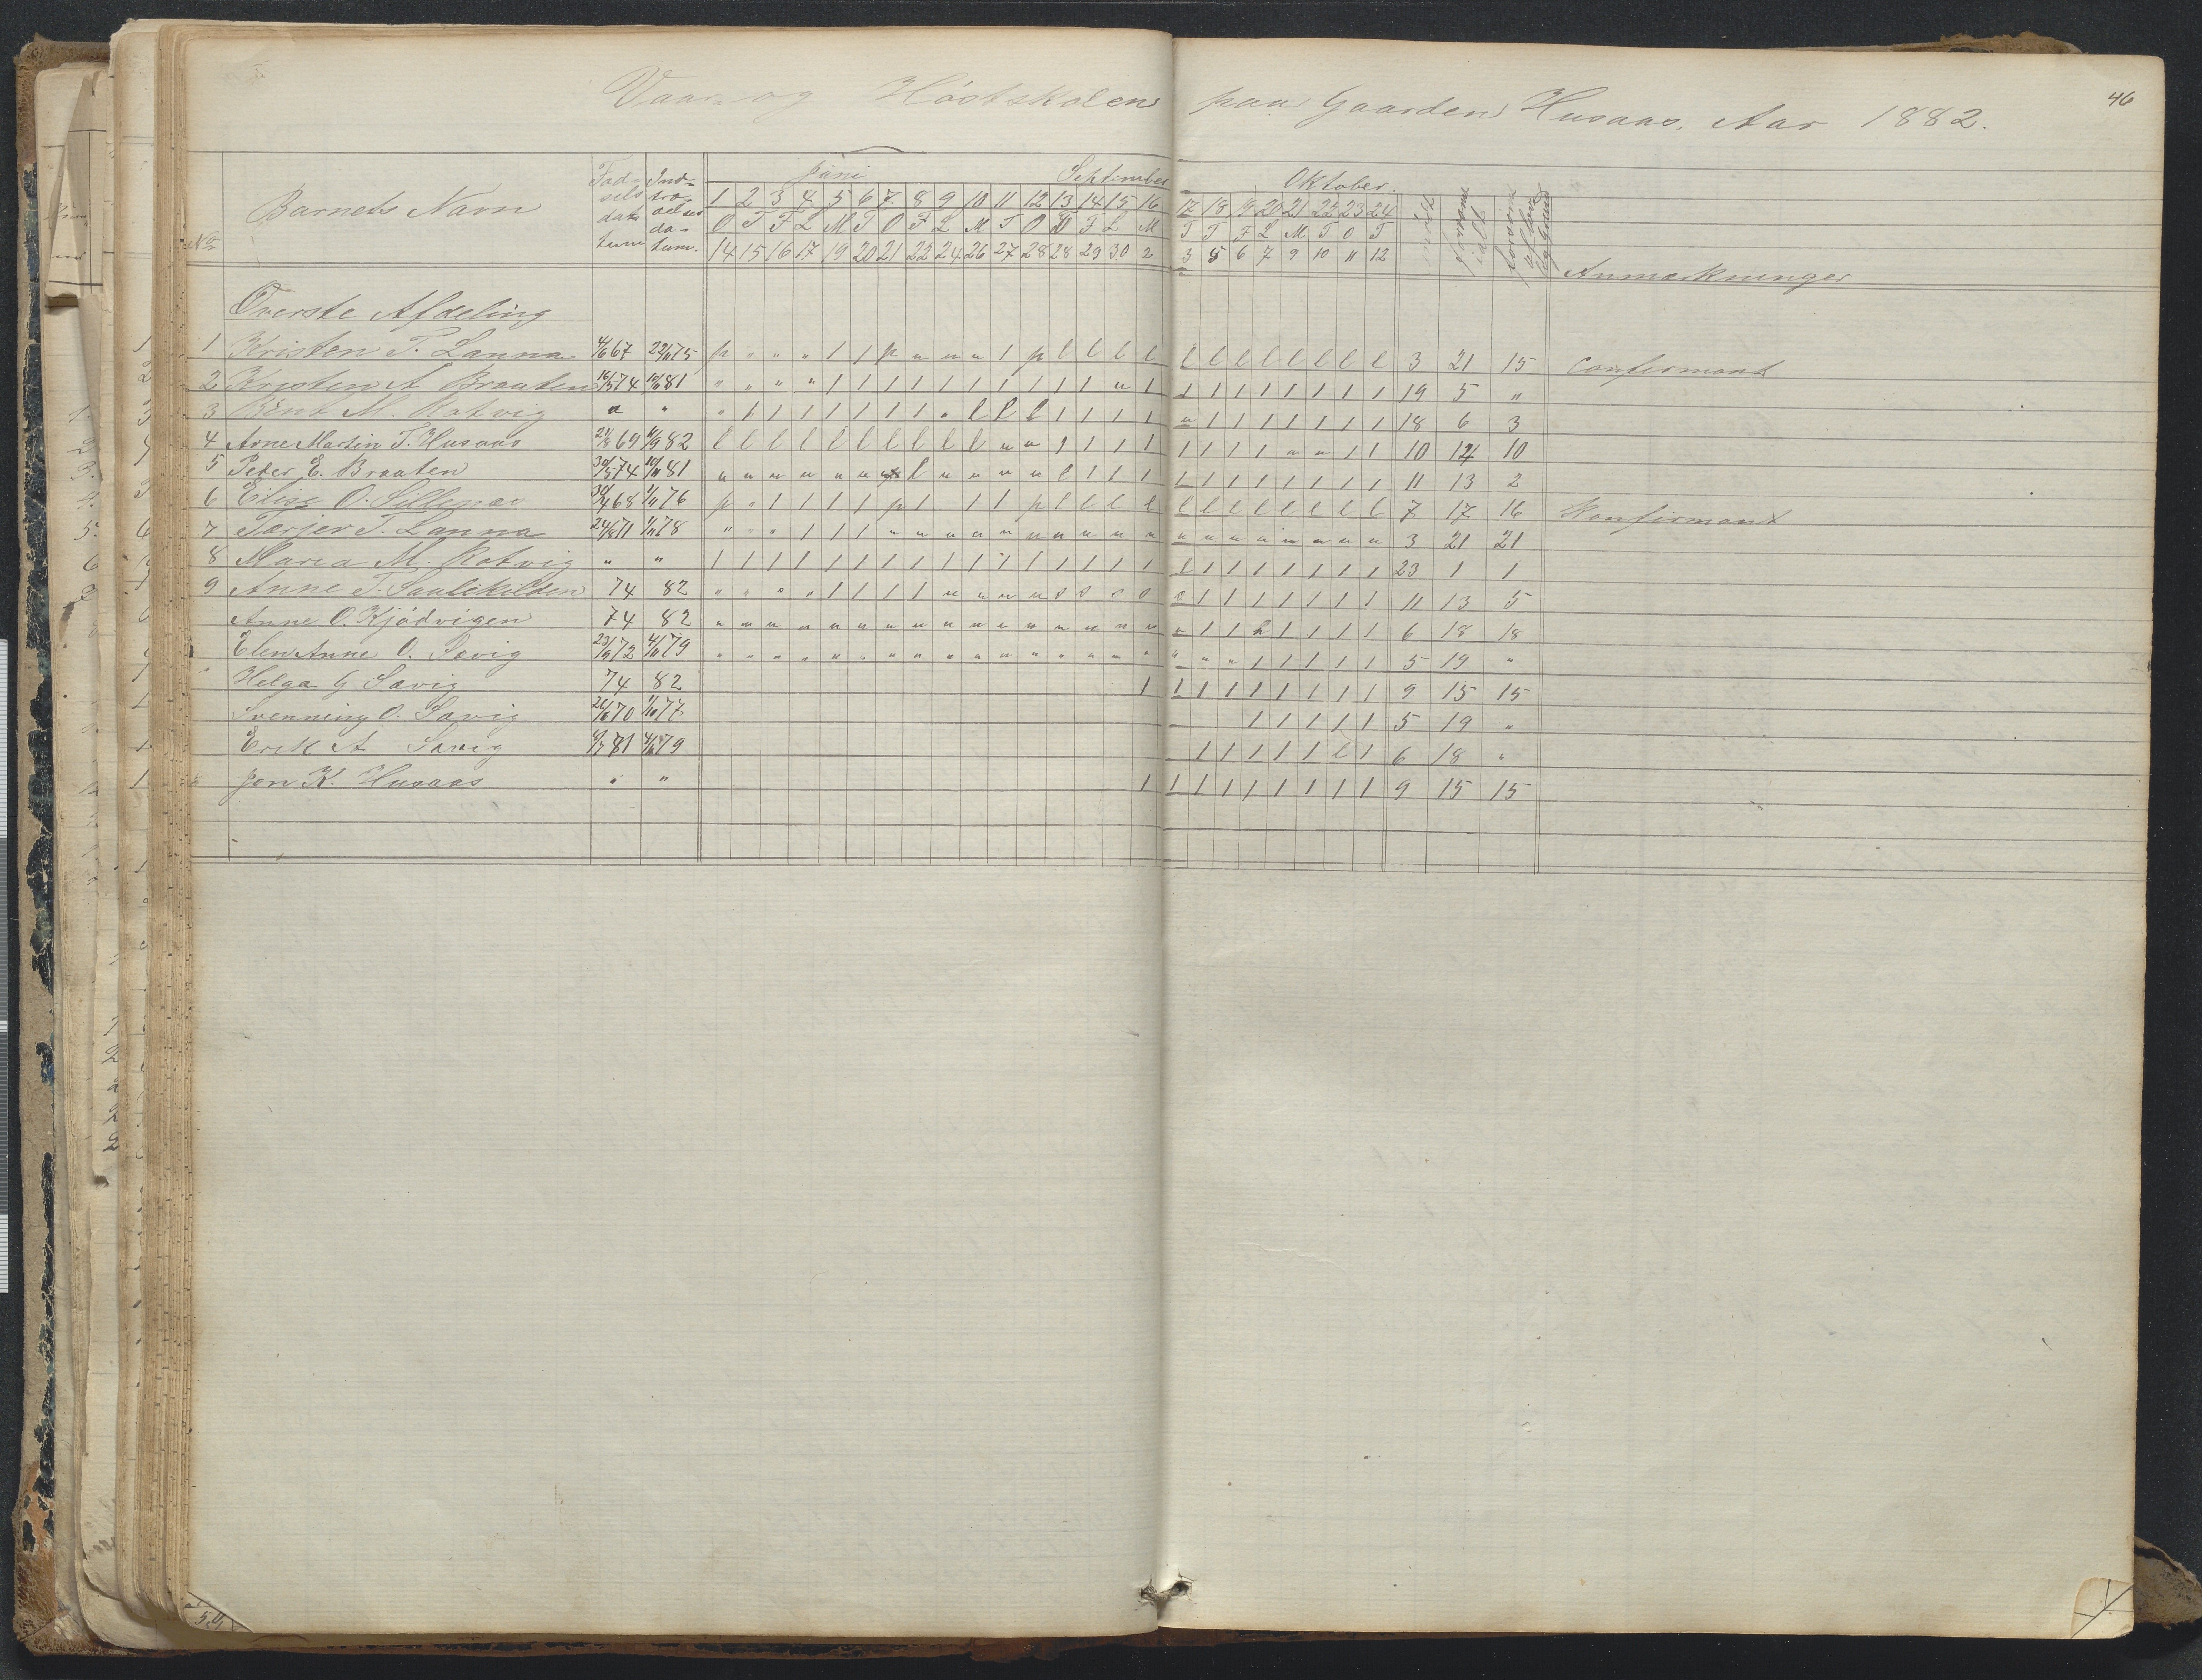 Vaar og Høstskolen paa Gaarden Husaas, Aar 1882.
46
Juni September Oktober.
No Barnets Navn Fødselsdatum Indtrædelsesdatum. 1 2 3 4 5 6 7 8 9 10 11 12 13 14 15 16 17 18 19 20 21 22 23 24 mødt forsømt ialt forsømt uden lovlig Grund
O T F L M T O F L M T O T F L M T T F L M T O T
14 15 16 17 19 20 21 22 24 26 27 28 28 29 30 2 3 5 6 7 9 10 11 12 Anmærkninger
Øverste Afdeling
1 Kristen T. Lanna 4/6 67 22/11 75 p " " " 1 1 p " " " 1 p l l l l l l l l l l l l 3 21 15 Confirmant
2 Kristen A Braaten 16/5 74 10/11 81 " " " " 1 1 1 1 1 1 1 1 1 1 " 1 1 1 1 1 1 1 1 1 19 5 "
3 Bent M. Ratvig " " " 1 1 1 1 1 1 1 " l l l 1 1 1 1 " 1 1 1 1 1 1 1 18 6 3
4 Arne Martin T. Husaas 21/8 69 11/9 82 l l l l l l l l l l " " 1 1 1 1 1 1 1 1 " " 1 1 10 14 10
5 Peder E. Braaten 30/5 74 10/11 81 " " " " " " " l " " " " l 1 1 1 1 1 1 1 1 1 1 1 11 13 2
6 Elise O. Sillenæs 30/4 68 1/11 76 p " 1 1 1 1 p 1 1 1 p l l l l l l l l l l l l 7 17 16 Konfirmant
7 Tarjer T. Lanna 24/8 71 1/11 78 " " " 1 1 1 " " " " " " " " " " " " " " " " " " 3 21 21
8 Maria M. Ratvig " " 1 1 1 1 1 1 1 1 1 1 1 1 1 1 1 1 1 1 1 1 1 1 1 1 23 1 1
9 Anne T. Saulekilden 74 82 " " " " 1 1 1 1 " " " " s s s s s 1 1 1 1 1 1 1 11 13 5
Anne O. Kjødvigen 74 82 " " " " " " " " " " " " " " " " " 1 1 h 1 1 1 1 6 18 18
Elen Anne O. Savig 23/9 72 4/11 79 " " " " " " " " " " " " " " " " " " " 1 1 1 1 1 5 19 "
Helga G Savig 74 82 1 1 1 1 1 1 1 1 1 9 15 15
Svenning O. Savig 26/6 70 1/10 77 1 1 1 1 1 5 19 "
Erik A Savig 6/7 81 4/11 79 1 1 1 1 1 l 1 6 18 "
Jon K. Husaas " " 1 1 1 1 1 1 1 1 1 9 15 15